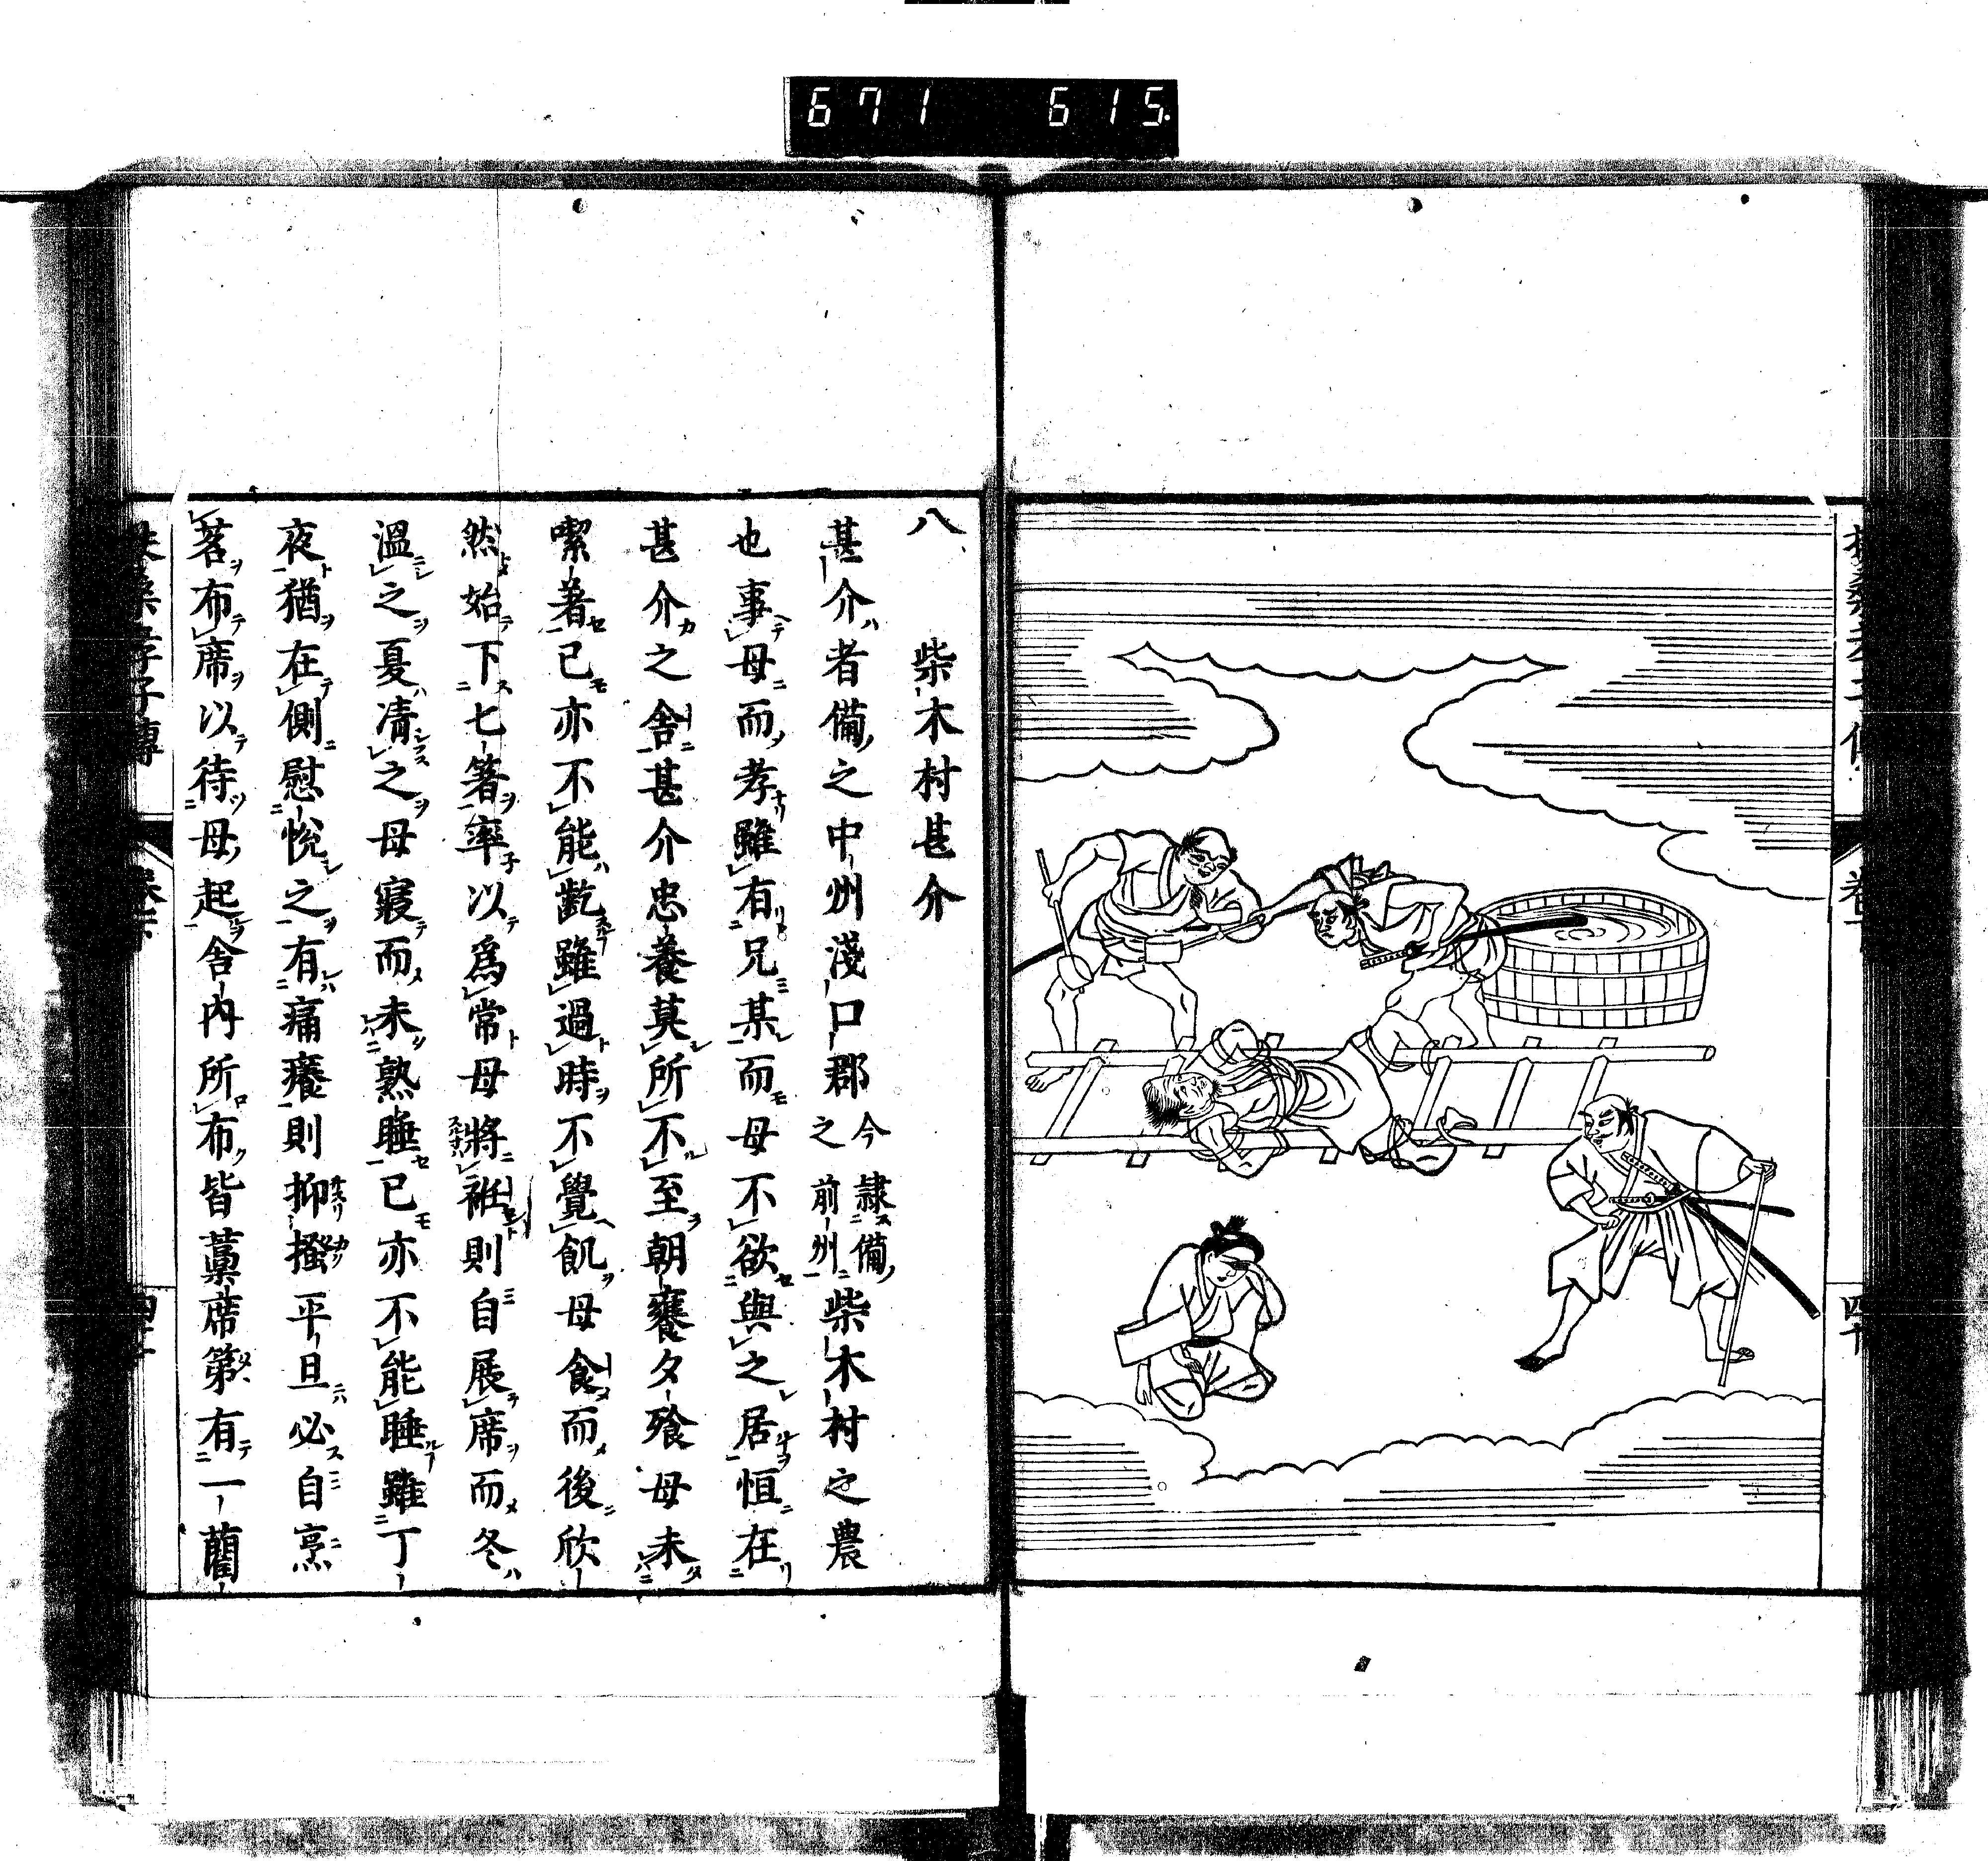 671 615
八 柴木村甚介
甚介者備之中州淺口郡今隷備之前州柴木村之農
也事母而孝雖有兄某而母不欲與之居恒在
甚介之舎甚介忠養莫所不至朝饔夕飱母未
喫著已亦不能齕雖過時不覺飢母食而後欣
然始下匕箸率以爲常母將袵則自展席而冬
溫之夏凊之母寢而未熟睡已亦不能睡雖丁
夜猶在側慰悅之有痛癢則抑搔平旦必自烹
茗布席以待母起舎内所布皆藁席第有一藺